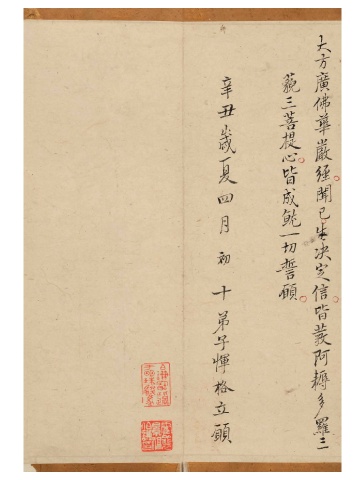 大方廣佛華嚴經聞已生決定信皆發阿耨多羅三
藐三菩提心皆成就一切誓願
辛丑歲夏四月初十弟子惲格立願